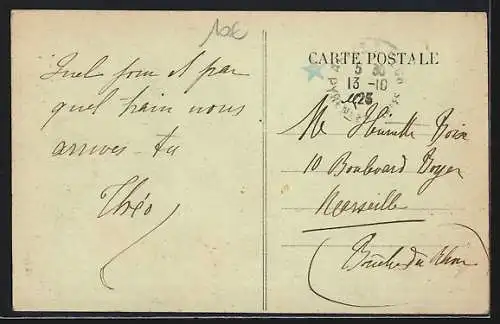 Quel jour et par
quel train nous
arrives-tu
Théo
CARTE POSTALE
5 30
13-10
25
Me Henriette Boix
10 Boulevard Boyer
Marseille
Bouches du Rhone